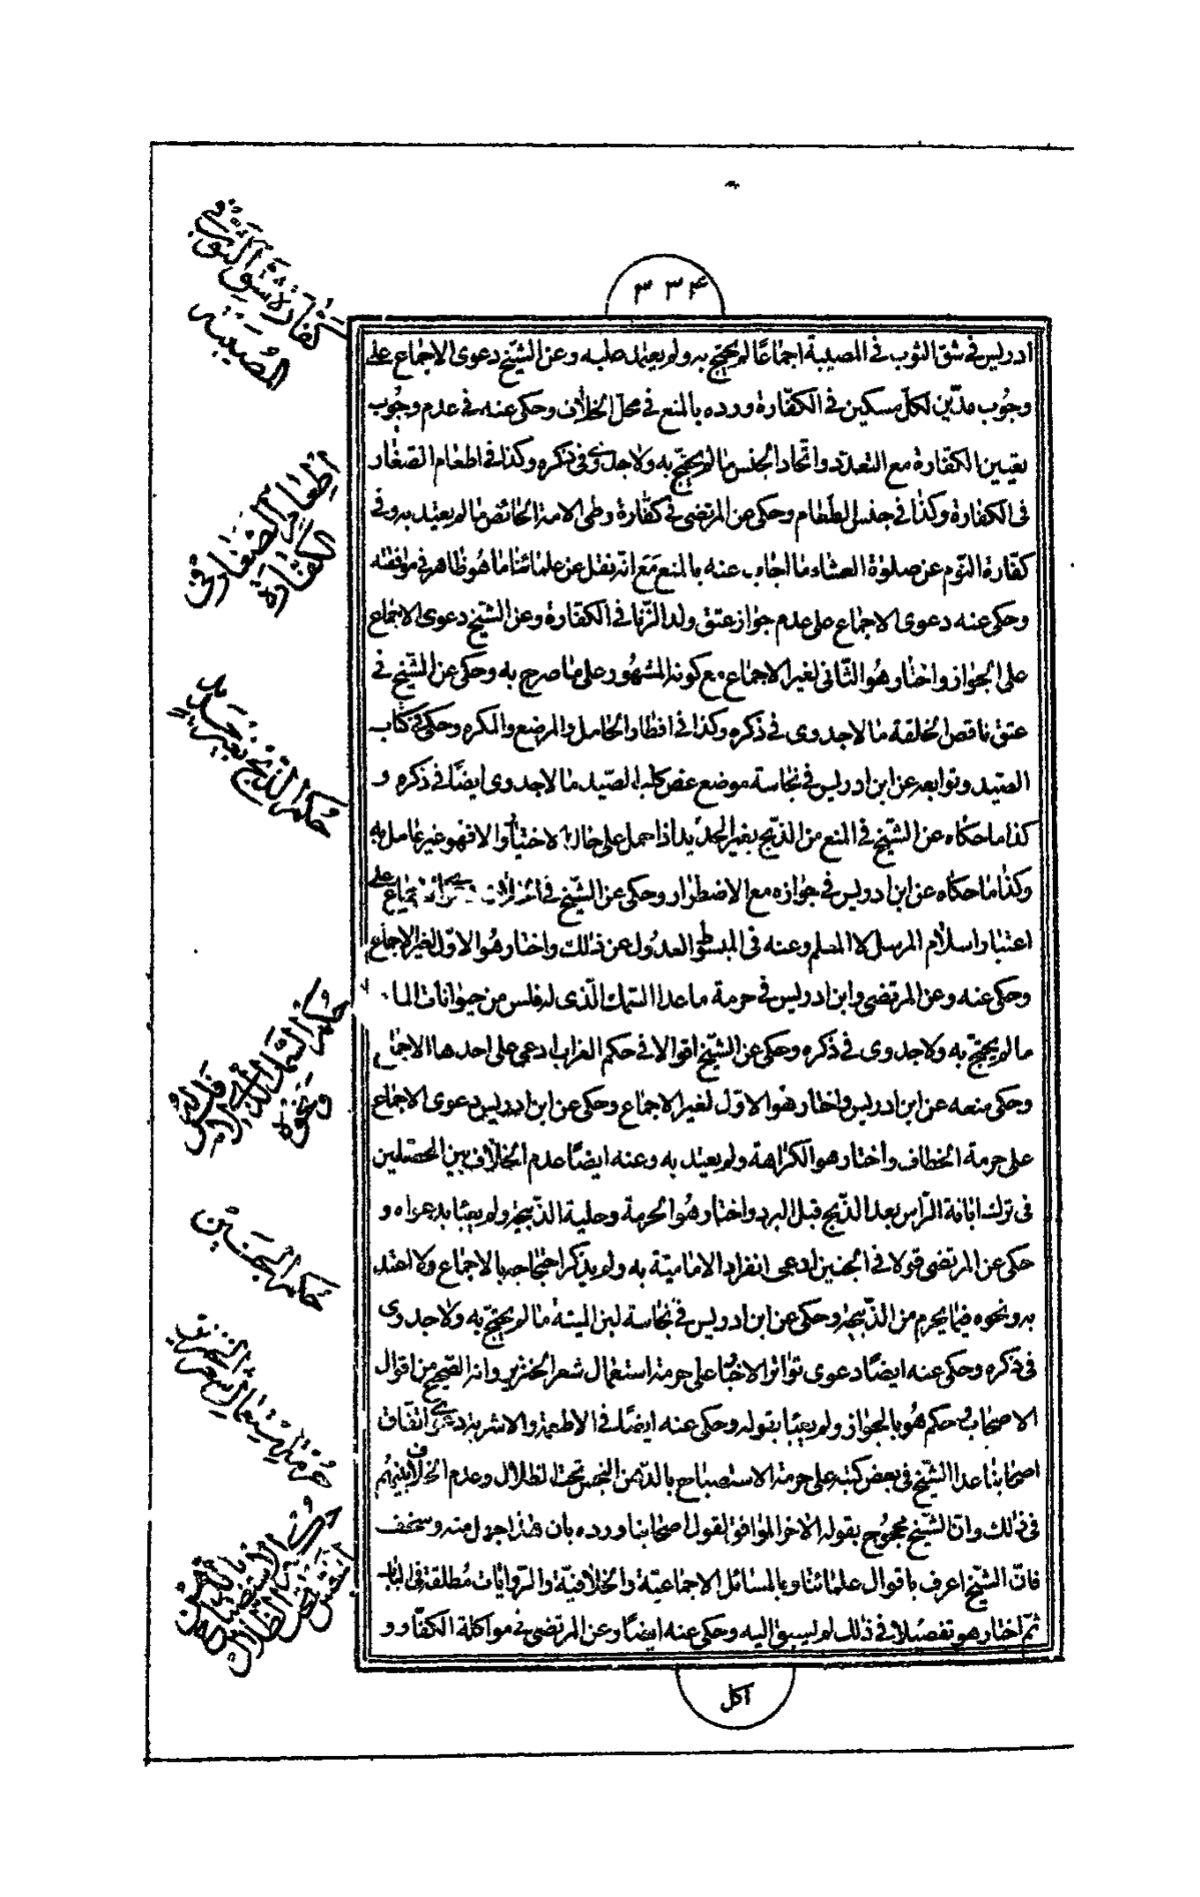 ٣٣۴
ادريس فى شق الثوب فى المصيبة اجماعًا لم يحتج به ولم يعتمد عليه وعن الشيخ دعوى الاجماع على
وجوب مدّين لكل مسكين فى الكفّارة ورده بالمنع فى محل الخلاف وحكى عنه فى عدم وجوب
تعيين الكفارة مع التعدّد واتحاد الجنس ما لم يحتج به ولا جدوى فى ذكره وكذا فى اطعام الصغار
فى الكفارة وكذا فى جنس الطعام وحكى عن المرتضى فى كفّارة وطى الامة الحائض ما لم يعتد به وفى
كفّارة النوم عن صلوة العشاء ما اجاب عنه بالمنع مع انّه نقل عن علمائنا ما هو ظاهر فى موافقته
وحكى عنه دعوى الاجماع على عدم جواز عتق ولد الزنا فى الكفارة وعن الشيخ دعوى الاجماع
على الجواز واختار هو الثانى لغير الاجماع مع كونه المشهور على ما صرح به وحكى عن الشيخ فى
عتق ناقص الخلقة ما لا جدوى فى ذكره وكذا فى افطار الحامل والمرضع والمكره وحكى فى كتاب
الصيد وتوابعه عن ابن ادريس فى نجاسة موضع عض كلب الصّيد ما لا جدوى ايضًا فى ذكره و
كذا ما حكاه عن الشيخ فى المنع من الذّبح بغير الحديد اذا حمل على حال الاختيار والا فهو غير عامل به
وكذا ما حكاه عن ابن ادريس فى جوازه مع الاضطرار وحكى عن الشيخ فى على
اعتبار اسلام المرسل لا المعلم وعنه فى المبسوط العدول عن ذلك واختار هو الاوّل لغير الاجماع
وحكى عنه وعن المرتضى وابن ادريس فى حرمة ما عدا السّمك الّذى له فلس من حيوانات الما
ما لم يحتج به ولا جدوى فى ذكره وحكى عن الشيخ اقوالا فى حكم الغراب ادعى على احدها الاجماع
وحكى منعه عن ابن ادريس واختار هو الاوّل لغير الاجماع وحكى عن ابن ادريس دعوى الاجماع
على حرمة الخطاف واختار هو الكراهة ولم يعتد به وعنه ايضًا عدم الخلاف بين المحصلين
فى ترك ابانة الرّاس بعد الذّبح قبل البرد واختار هو الحرمة وحلية الذّبيحة ولم يعبأ بدعواه و
حكى عن المرتضى قولا فى الجنين ادعى انفراد الامامية به ولم يذكر احتجاجه بالاجماع ولا اعتد
به ونحوه فيما يحرم من الذّبيحة وحكى عن ابن ادريس فى نجاسة لبن الميتة ما لم يحتج به ولا جدوى
فى ذكره وحكى عنه ايضًا دعوى تواتر الاخبار على حرمة استعمال شعر الخنزير وانه الصحيح من اقوال
الاصحاب وحكم هو بالجواز ولم يعبأ بقوله وحكى عنه ايضًا فى الاطعمة والاشربة دعوى اتفاق
اصحابنا عدا الشيخ فى بعض كتبه على حرمة الاستصباح بالدّهن النجس تحت الظلال وعدم الخلاف بينهم
فى ذلك وانّ الشيخ محجوج بقوله الاخر الموافق لقول اصحابنا ورده بان هذا جهل منه وسخف
فانّ الشيخ اعرف باقوال علمائنا وبالمسائل الاجماعيّة والخلافيّة والرّوايات مطلقة فى الباب
ثمّ اختار هو تفصيلا فى ذلك لم يسبق اليه وحكى عنه ايضًا وعن المرتضى فى مواكلة الكفّار و
اكل
كفارة شق الثوب فى
المصيبة
اطعام الصغار فى
الكفارة
حكم الذبح بغير حديد
حكم السمك الذى ليس له فلس
ونحوه
حكم الجنين
حرمة استعمال شعر الخنزير
حرمة الاستصباح بالدهن
النجس تحت الظلال